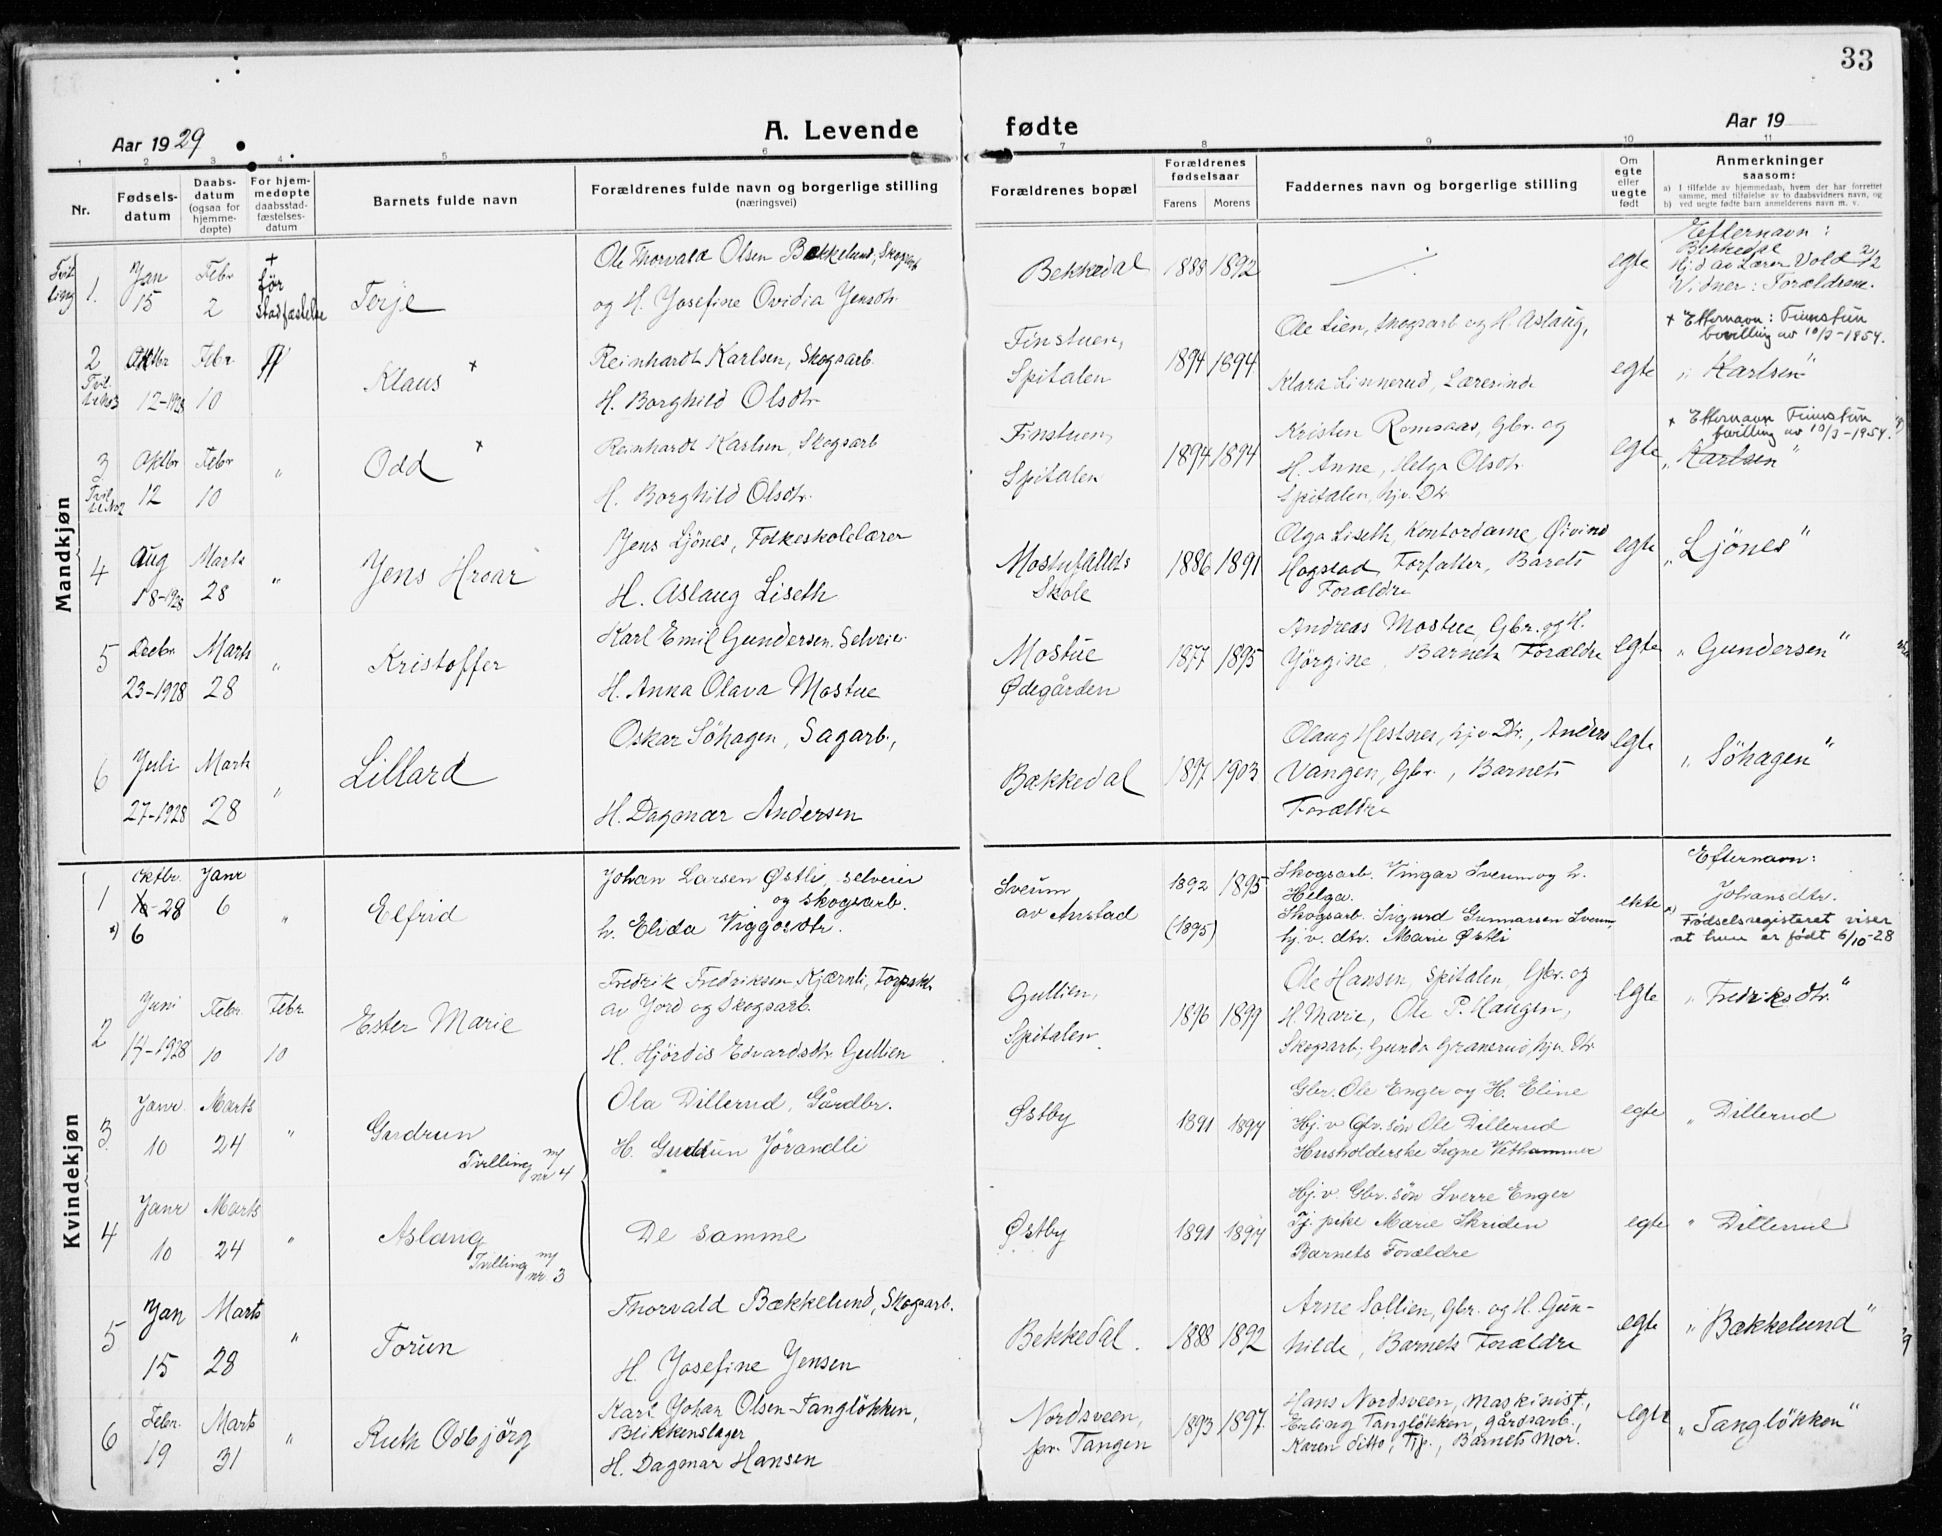 33
Aar 1929
A. Levende fødte
Aar 19
1 2 3 4 5 6 7 8 9 10 11
Nr.
Fødsels-
datum
Daabs-
datum
(ogsaa for
hjemme-
døpte)
For hjem-
medøpte
daabsstad-
fæstelses-
datum
Barnets fulde navn
Forældrenes fulde navn og borgerlige stilling
(næringsvei)
Forældrenes bopæl
Forældrenes
fødselsaar
Farens Morens
Faddernes navn og borgerlige stilling
Om
egte
eller
uegte
født
Anmerkninger
saasom:
a) I tilfælde av hjemmedaab, hvem der har forrettet
samme, med tilføielse av to daabsvidners navn, og
b) ved uegte fødte barn anmelderens navn m. v.
Mandkjøn
Tvil
ling
1. Jan
15
Febr
2
+
før
stadfæstelse
Terje
Ole Thorvald Olsen Bekkelund, Skogsarb
og H. Josefine Ovidia Jensdtr.
Bekkedal
1888 1892
egte
Efternavn:
Bekkedal
Hjd av Lærer Vold 2/2
Vidner: Forældrene.
2
Oktbr
12-1928
Febr.
10
Klaus +
Reinhardt Karlsen, Skogsarb.
H. Borghild Olsdtr.
Finstuen,
Spitalen
1894 1894
Ole Lien, Skogsarb og H. Aslaug,
Klara Linnerud, Lærerinde
egte
+ Efternavn: Finnstun
bevilling av 10/3-1954.
„ Karlsen"
3
Oktbr
12
Febr
10
"
Odd +
Reinhardt Karlsen, Skogsarb
H. Borghild Olsdtr.
Finstuen,
Spitalen
1894 1894
Kristen Romsaas, Gbr. og
H. Anne, Helga Olsdtr.
Spitalen, hjv. Dtr.
egte
+ Efternavn Finnstun
bevilling av 10/3-1954.
„ Karlsen"
4
Aug
18-1928
Marts
28
"
Jens Hroar
Jens Ljönes, Folkeskolelærer
H. Aslaug Liseth
Mostufallets
Skole
1886 1891
Olga Liseth, Kontordame, Øivind
Hogstad, Forfatter, Barets
Forældre
egte
„Ljönes"
5
Decbr.
23-1928
Marts
28
"
Kristoffer
Karl Emil Gundersen. Selveier
H. Anna Olava Mostue
Mostue
Ødegården
1877 1895
Andreas Mostue, Gbr. og H.
Jörgine, Barnets Forældre
egte
„ Gundersen"
6
Juli
27-1928
Marts
28
"
Lillard
Oskar Söhagen, Sagarb.,
H. Dagmar Andersen
Bækkedal
1897 1903
Olaug Hestnes, hjv. Dtr., Anders
Vangen, Gbr., Barnets
Forældre
egte
„ Söhagen"
Kvindekjøn
1
Oktbr.
-28
6
Janr
6
"
Elfrid
Johan Larsen Østli, selveier
og skogsarb.
h. Elida Viggosdtr.
Sverum
av Anstad
1892 1895
(1895)
Skogsarb. Vingar Sverum og h.
Helga.
Skogsarb. Sigurd Gunnarsen Sverum,
hj. v. dtr. Marie Østli
ekte
Efternavn:
Johansdtr.
Fødselsregisteret viser
at hun er født 6/10-28
2
Juni
14-1928
Febr.
10
Febr.
10
Ester Marie
Fredrik Fredriksen Kjærnli, Forpakt.
av Jord og Skogsarb.
H. Hjördis Edvardsdtr Gullien
Gullien,
Spitalen
1896 1899
Ole Hansen, Spitalen, Gbr. og
H. Marie, Ole P. Haugen,
Skogsarb, Gunda Granerud, hjv. Dtr
egte
„ Fredriksdtr."
3
Janr.
10
Marts
24
"
Gudrun
Tvilling m/
nr 4
Ola Dillerud, Gårdbr.
H. Gudrun Jörandli
Østby
1891 1897
Gbr. Ole Enger og H. Eline
Hj. v. Gbr. søn Ole Dillerud
Husholderske Signe Vethammer
egte
„ Dillerud
4
Janr
10
Marts
24
"
Aslaug
Tvilling m/
nr. 3
De samme
Østby
1891 1897
Hj. v. Gbr. søn Sverre Enger
Tj. pike Marie Skriden
Barnets Forældre
egte
" Dillerud
5
Jan
15
Marts
28
"
Torun
Thorvald Bækkelund, Skogsarb.
H. Josefine Jensen
Bekkedal.
1888 1892
Arne Sollien, Gbr. og H. Gun-
hilde, Barnets Forældre
egte
„ Bækkelund"
6
Febr.
19
Marts
31
"
Ruth Odbjörg
Karl Johan Olsen-Tanglökken,
Blikkenslager
H. Dagmar Hansen
Nordsveen,
pr. Tangen
1893 1897
Hans Nordsveen, maskinist,
Erling Tanglökken, gårdsarb.,
Karen ditto, Tjp., Barnets Mor.
egte
„Tanglökken"